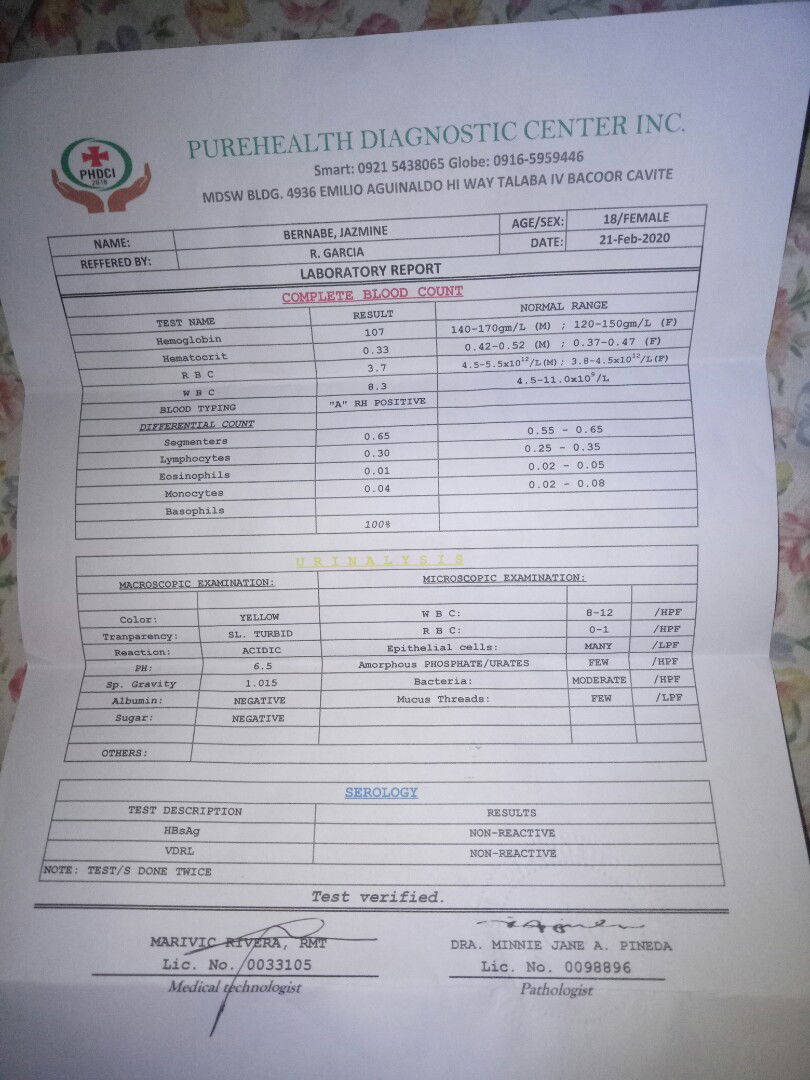 PHDCI
2018
PUREHEALTH DIAGNOSTIC CENTER INC.
Smart: 0921 5438065 Globe: 0916-5959446
MDSW BLDG. 4936 EMILIO AGUINALDO HI WAY TALABA IV BACOOR CAVITE
NAME: BERNABE, JAZMINE AGE/SEX: 18/FEMALE
REFFERED BY: R. GARCIA DATE: 21-Feb-2020
LABORATORY REPORT
COMPLETE BLOOD COUNT
TEST NAME RESULT NORMAL RANGE
Hemoglobin 107 140-170gm/L (M) ; 120-150gm/L (F)
Hematocrit 0.33 0.42-0.52 (M) ; 0.37-0.47 (F)
R B C 3.7 4.5-5.5x10¹²/L(M); 3.8-4.5x10¹²/L(F)
W B C 8.3 4.5-11.0x10⁹/L
BLOOD TYPING "A" RH POSITIVE
DIFFERENTIAL COUNT
Segmenters 0.65 0.55 - 0.65
Lymphocytes 0.30 0.25 - 0.35
Eosinophils 0.01 0.02 - 0.05
Monocytes 0.04 0.02 - 0.08
Basophils
100%
URINALYSIS
MACROSCOPIC EXAMINATION: MICROSCOPIC EXAMINATION:
Color: YELLOW W B C: 8-12 /HPF
Tranparency: SL. TURBID R B C: 0-1 /HPF
Reaction: ACIDIC Epithelial cells: MANY /LPF
PH: 6.5 Amorphous PHOSPHATE/URATES FEW /HPF
Sp. Gravity 1.015 Bacteria: MODERATE /HPF
Albumin: NEGATIVE Mucus Threads: FEW /LPF
Sugar: NEGATIVE
OTHERS:
SEROLOGY
TEST DESCRIPTION RESULTS
HBsAg NON-REACTIVE
VDRL NON-REACTIVE
NOTE: TEST/S DONE TWICE
Test verified.
MARIVIC RIVERA, RMT DRA. MINNIE JANE A. PINEDA
Lic. No. 0033105 Lic. No. 0098896
Medical technologist Pathologist